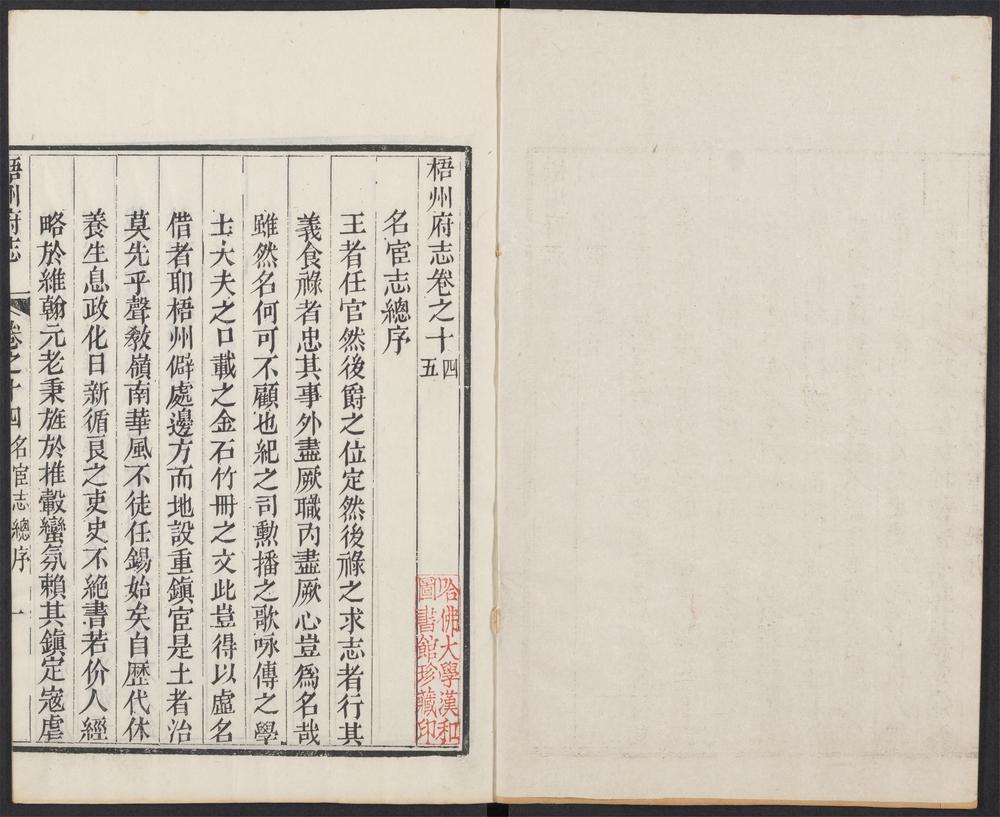 梧州府志卷之十四五
名宦志總序
王者任官然後爵之位定然後祿之求志者行其
義食祿者忠其事外盡厥職內盡厥心豈爲名哉
雖然名何可不顧也紀之司勲播之歌咏傳之學
士大夫之口載之金石竹冊之文此豈得以虛名
借者耶梧州僻處邊方而地設重鎮宦是土者治
莫先乎聲教嶺南華風不徒任錫始矣自歴代休
養生息政化日新循良之吏史不絕書若价人經
略於維翰元老秉旌於椎轂蠻氛賴其鎮定寇虐
梧州府志 卷之十四 名宦志總序 一
哈佛大學漢和
圖書館珍藏印